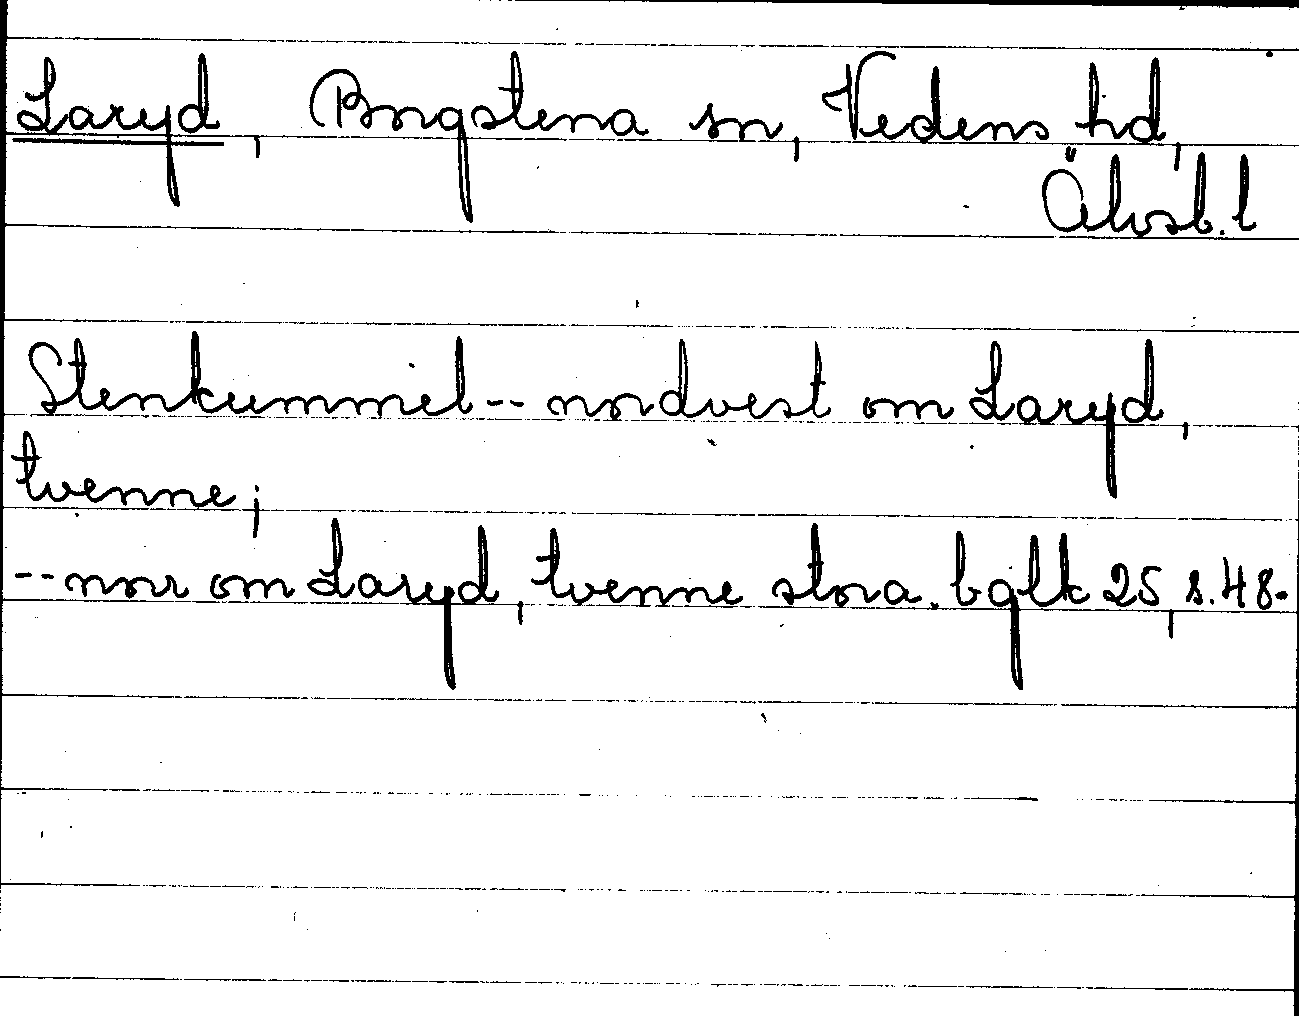 Laryd, Borgstena sn, Vedens hd,
Älvsb. l
Stenkummel -- nordvest om Laryd,
tvenne;
-- norr om Laryd, tvenne stora. bglk 25, s. 48.